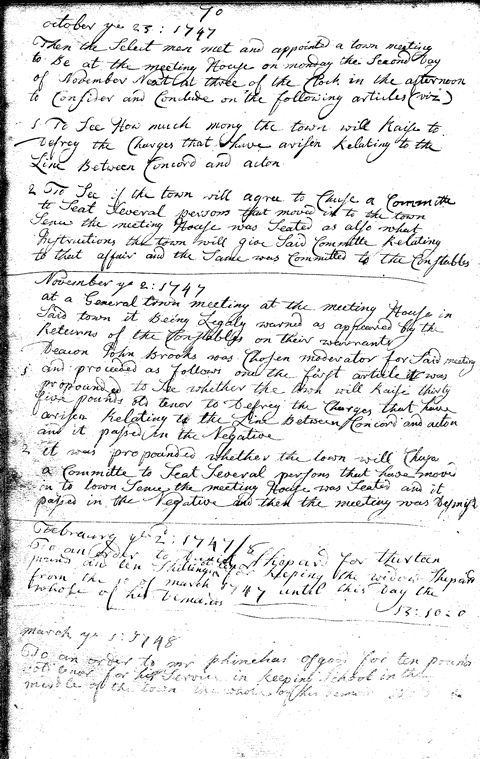 70
october ye 23: 1747
Then the Select men met and appointed a town meeting
to Be at the meeting House on monday the Second Day
of November Next at three of the Clock in the afternoon
to Consider and Conclude on the following articles (viz)
1 To See How much mony the town will Raise to
Defrey the Charges that have arisen Relating to the
Line Between Concord and acton
2 To See if the town will agree to Chuse a Committe
to Seat Several persons that moved in to the town
Sence the meeting House was Seated as also what
Instructions the town will give Said Committe Relating
to that affair and the Same was Committed to the Constables
November ye 2: 1747
at a General town meeting at the meeting House in
Said town it Being Legaly warned as appeared by the
Returns of the Constables on their warrants
Deacon John Brooks was Chosen moderator for Said meeting
1 and proceded as follows one the first article it was
propounded to See whether the town will Raise thirty
five pounds old tenor to Defrey the Charges that have
arisen Relating to the Line Between Concord and acton
and it passed in the Negative
2 it was propounded whether the town will Chuse
a Committe to Seat Several persons that have moved
in to town Sence the meeting House was Seated and it
passed in the Negative and then the meeting was Dismist
Februarry ye 2: 1747/8
To an order to Shepard for thirteen
pounds and ten Shillings for keeping the widow Shepard
from the of march 1747 until this Day the
whole of his Demands 13:10:0
march ye 1: 1748
To an order to mr phinehas for ten pounds
old tenor for his Service in keeping School in the
middle of the town the whole of his